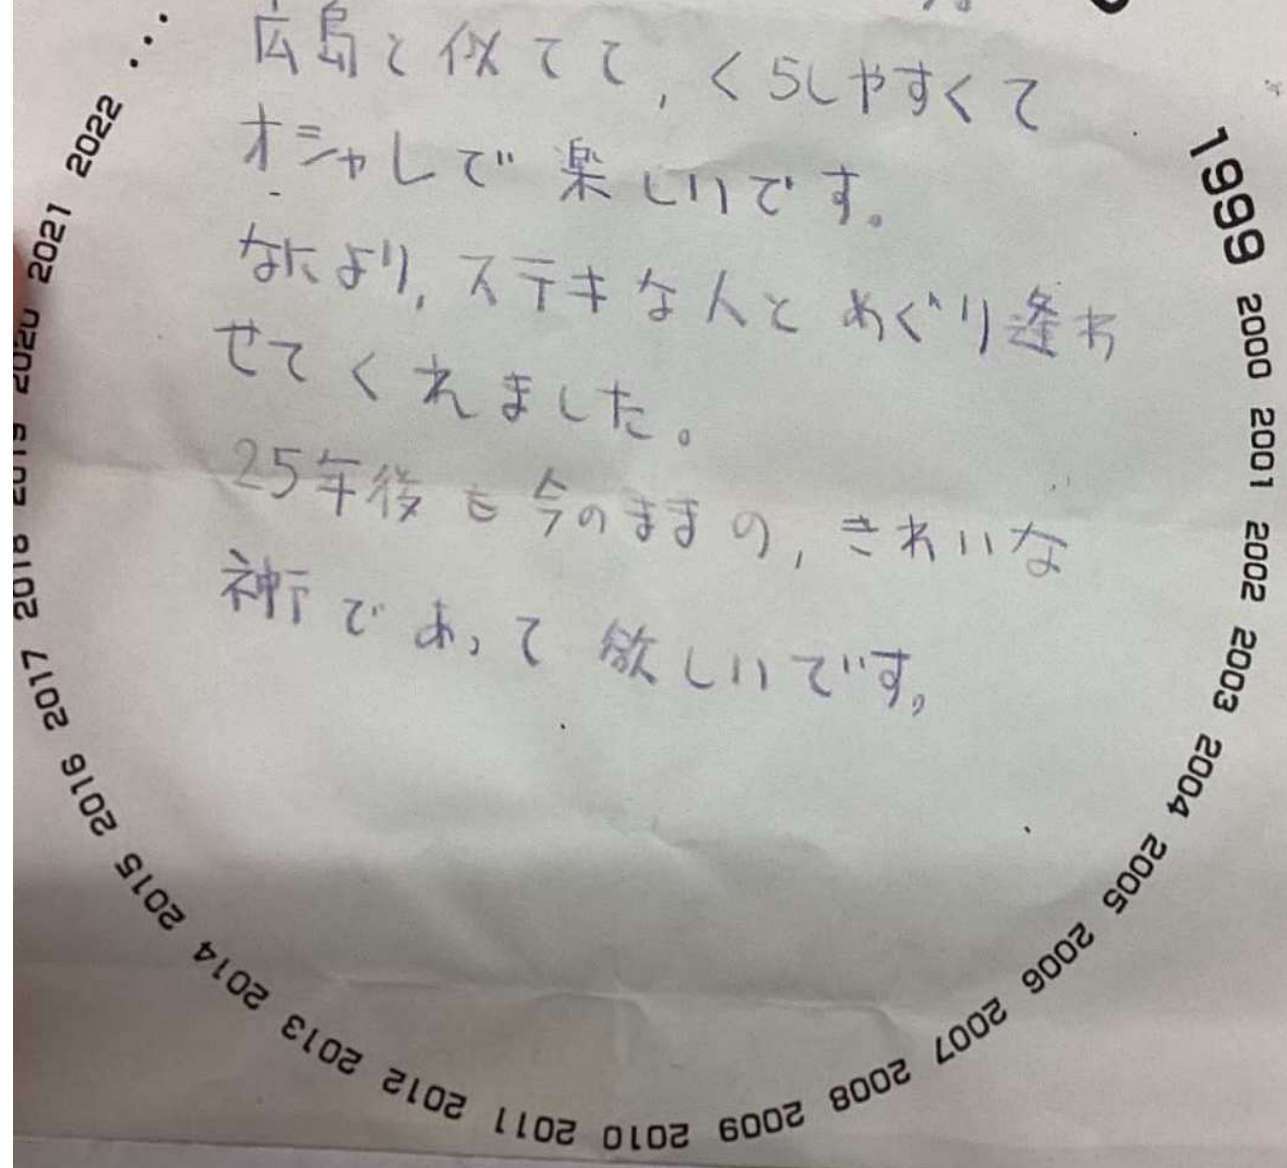 広島と似てて, くらしやすくて
オシャレで 楽しいです。
なにより, ステキな人と めぐり逢わ
せてくれました。
25年後も今のままの, きれいな
神戸であって 欲しいです。
1999 2000 2001 2002 2003 2004 2005 2006 2007 2008 2009 2010 2011 2012 2013 2014 2015 2016 2017 2018 2019 2020 2021 2022 ...